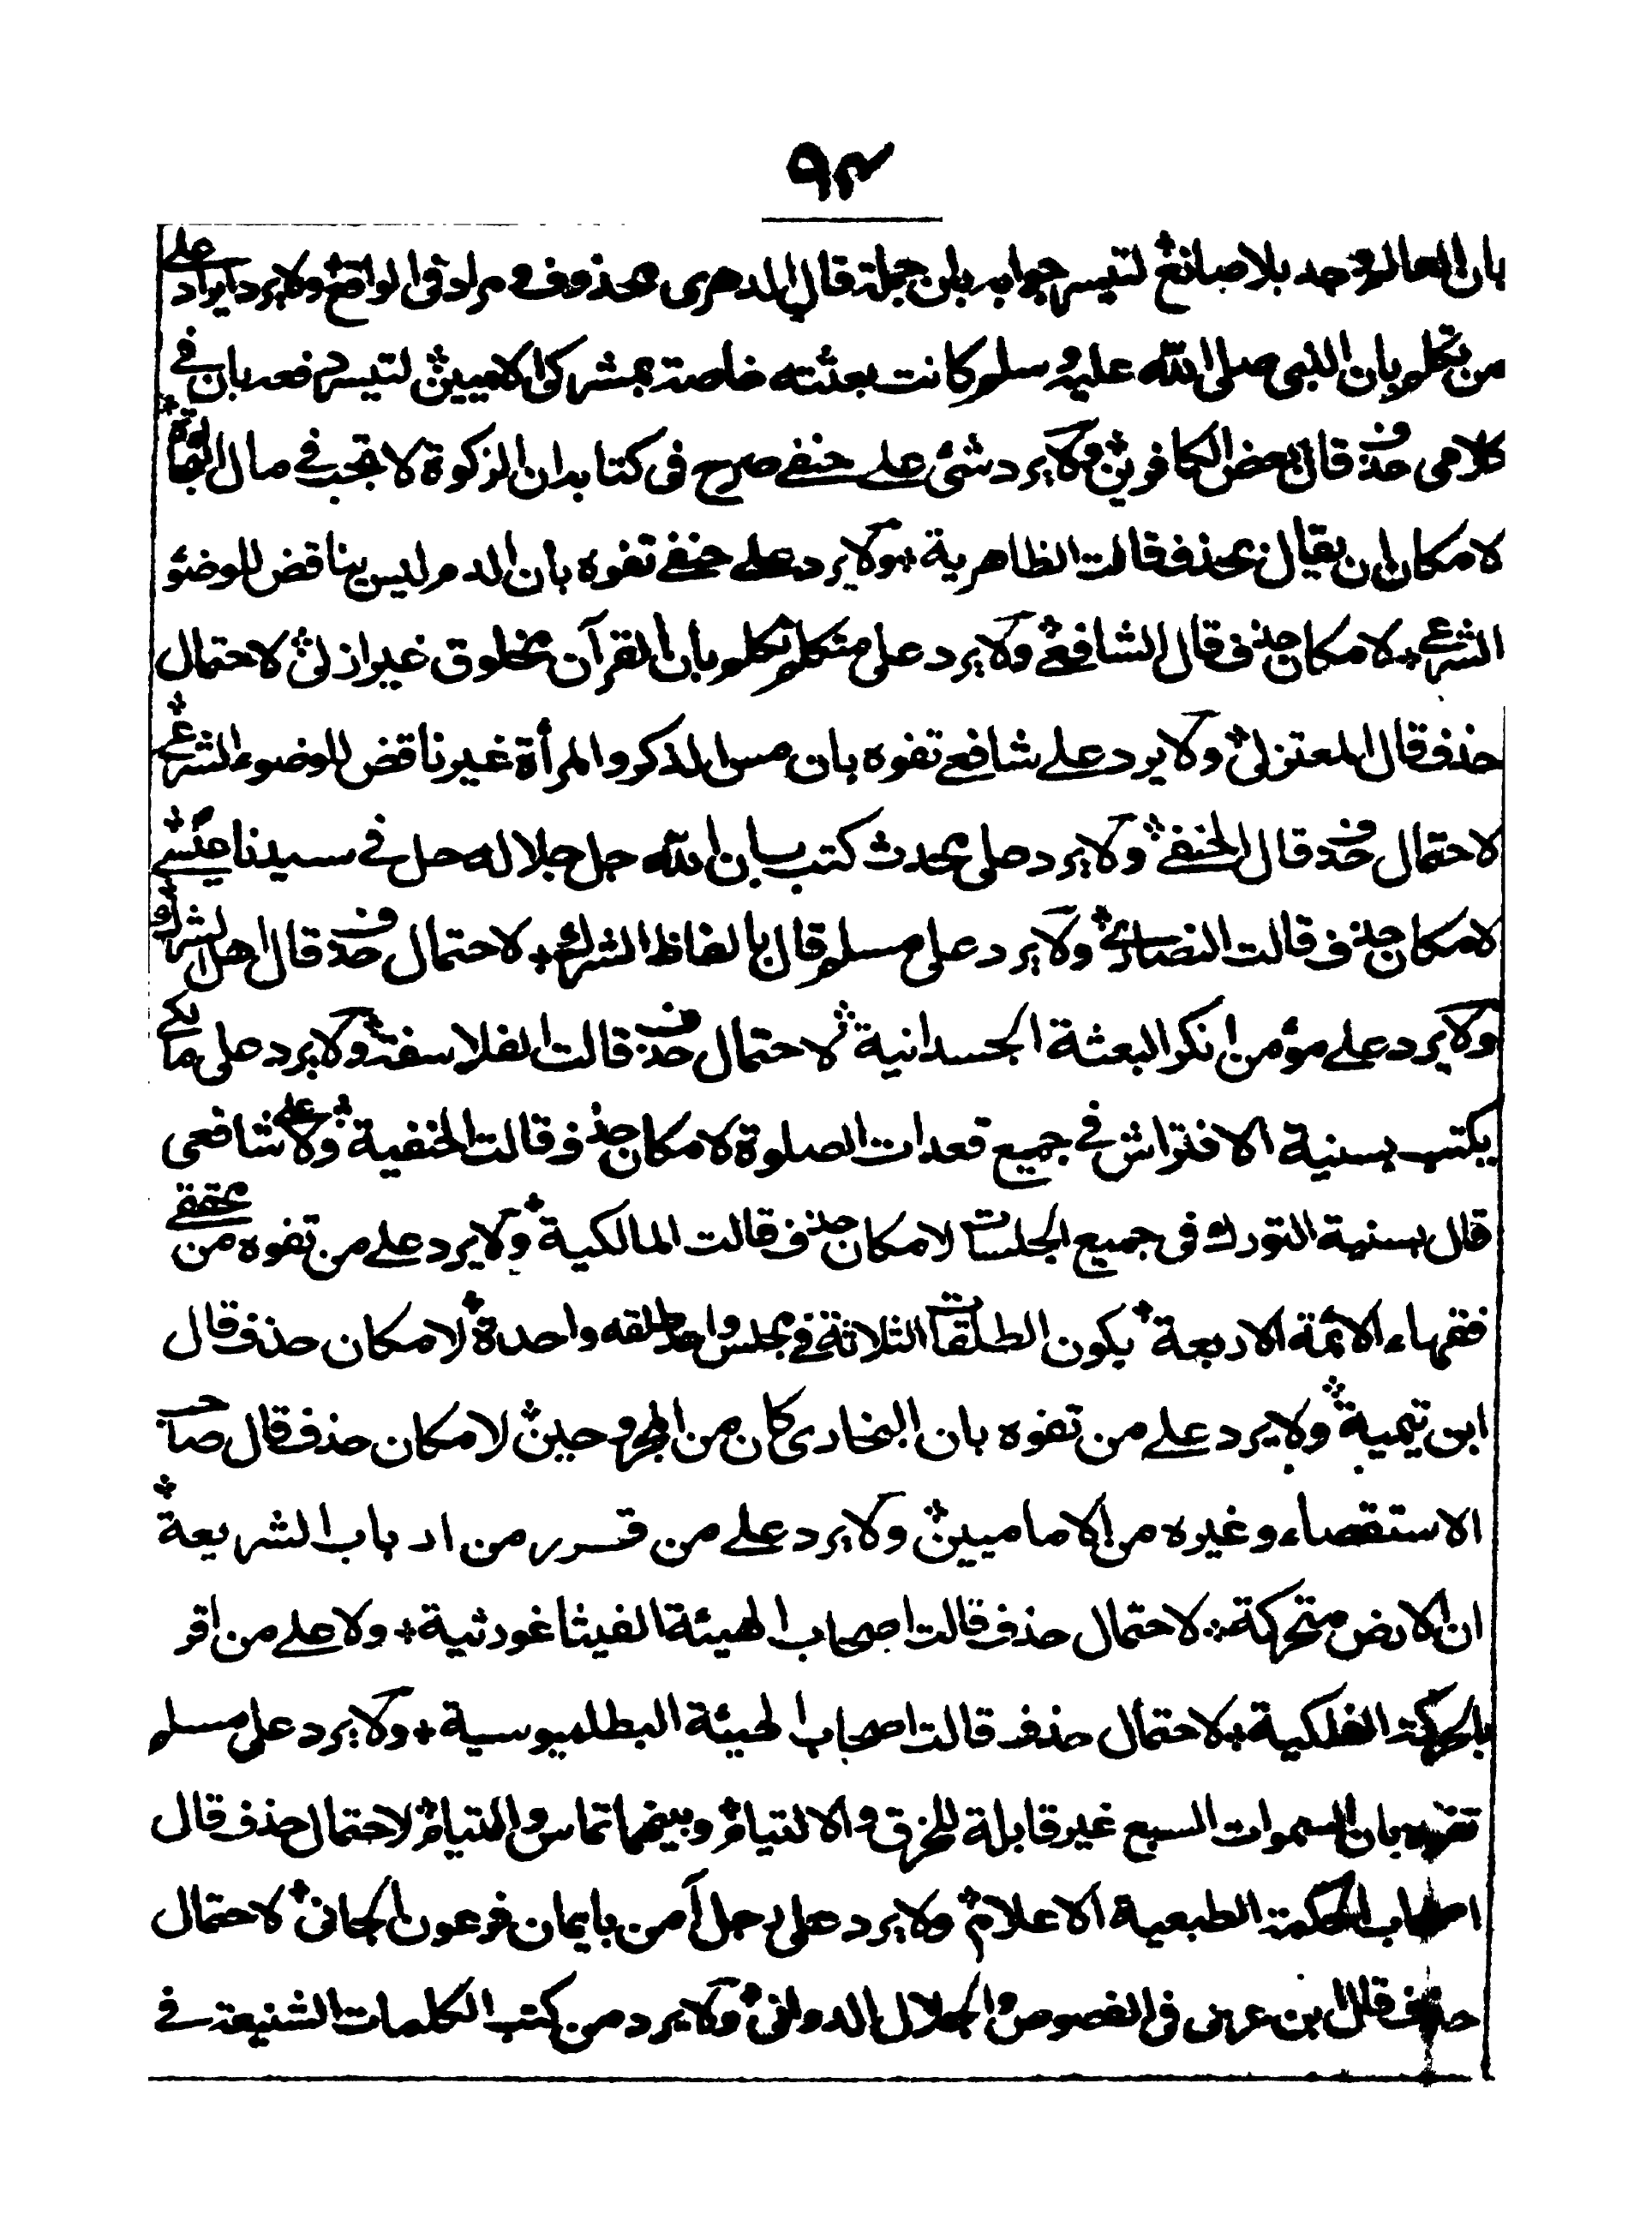 ٩٤
بان العالم وجد بلا صانع لتيسر جوابه بان جملة قال الدهري محذوف مراد في الواقع ولا يرد ايراد على
من تكلم بان النبي صلى الله عليه وسلم كانت بعثته خاصة بمشركي الاميين لتيسر دفعه بان في
كلامي حذف قال بعض الكافرين ولا يرد شئ على حنفي صرح في كتابه ان الزكوة لا تجب في مال التجارة
لامكان ان يقال بحذف قالت الظاهرية ولا يرد على حنفي تفوه بان الدم ليس بناقض للوضوء
الشرعي لامكان حذف قال الشافعي ولا يرد على متكلم تكلم بان القرآن مخلوق غير ازلي لاحتمال
حذف قال المعتزلي ولا يرد على شافعي تفوه بان مس الذكر والمرأة غير ناقض للوضوء الشرعي
لاحتمال حذف قال الحنفي ولا يرد على محدث كتب بان الله جل جلاله حل في سيدنا عيسى
لامكان حذف قالت النصارى ولا يرد على مسلم قال بالفاظ الشرك لاحتمال حذف قال اهل الشرك
ولا يرد على مؤمن انكر البعثة الجسدانية لاحتمال حذف قالت الفلاسفة ولا يرد على مالكي
يكتب بسنية الافتراش في جميع قعدات الصلوة لامكان حذف قالت الحنفية ولا على شافعي
قال بسنية التورك في جميع الجلسات لامكان حذف قالت المالكية ولا يرد على من تفوه من محققي
فقهاء الائمة الاربعة بكون الطلقات الثلاثة في مجلس واحد طلقه واحدة لامكان حذف قال
ابن تيمية ولا يرد على من تفوه بان البخاري كان من المجروحين لامكان حذف قال صاحب
الاستقصاء وغيره من الاماميين ولا يرد على من قرر من ارباب الشريعة
ان الارض متحركة لاحتمال حذف قالت اصحاب الهيئة الفيثاغورثية ولا على من اقر
بالحركة الفلكية لاحتمال حذف قالت اصحاب الهيئة البطلميوسية ولا يرد على مسلم
تفوه بان السموات السبع غير قابلة للخرق والالتيام وبينهما تماس والتيام لاحتمال حذف قال
اصحاب الحكمة الطبعية الاعلام ولا يرد على رجل آمن بايمان فرعون الجاني لاحتمال
حذف قال ابن عربي في الفصوص والجلال الدواني ولا يرد من كتب الكلمات الشنيعة في